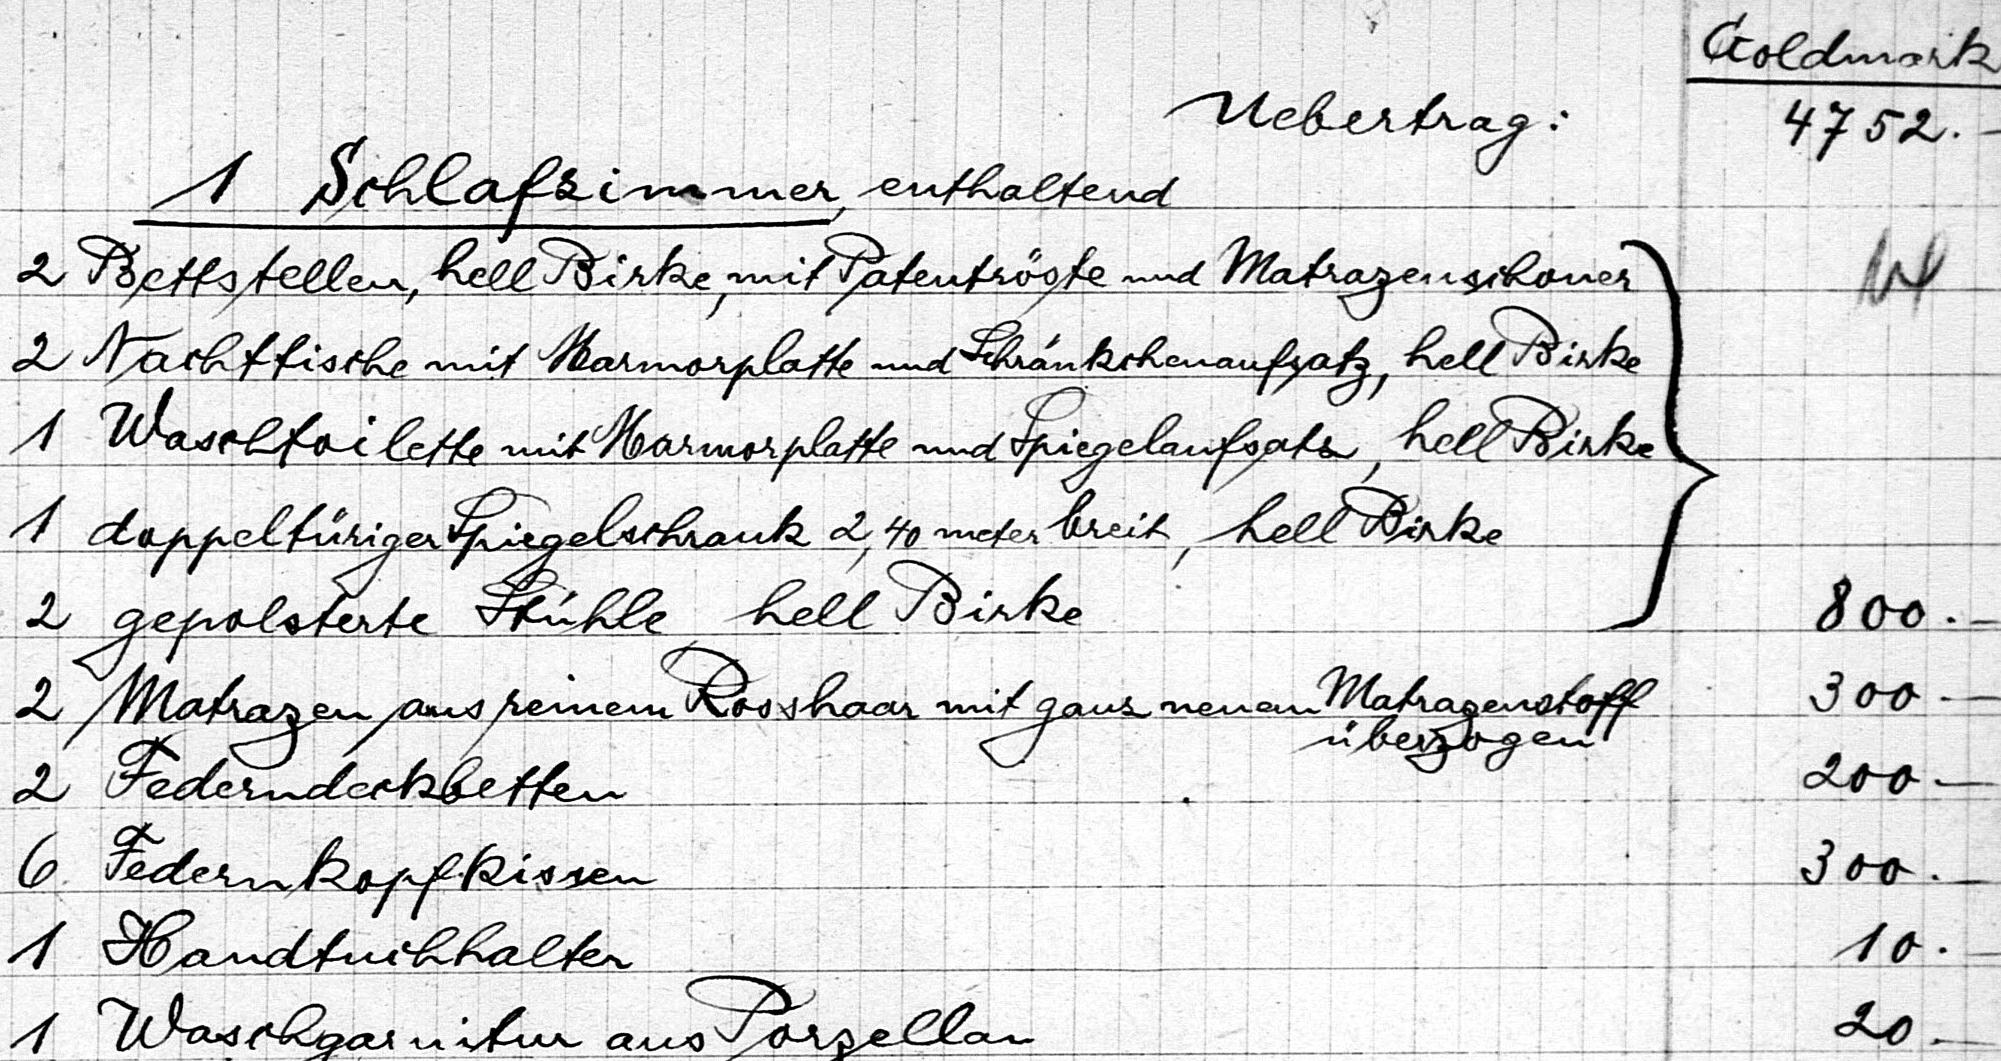 Goldmark
Uebertrag: 4752.-
1 Schlafzimmer, enthaltend
2 Bettstellen, hell Birke, mit Patentröste und Matrazenschoner
2 Nachttische mit Marmorplatte und Schränkchenaufsatz, hell Birke
1 Waschtoilette mit Marmorplatte und Spiegelaufsatz, hell Birke
1 doppeltüriger Spiegelschrank 2,40 meter breit, hell Birke
2 gepolsterte Stühle hell Birke 800.-
2 Matrazen aus reinem Rosshaar mit ganz neuen Matrazenstoff 300.-
überzogen
2 Federndeckbetten 200.-
6 Federnkopfkissen 300.-
1 Handtuchhalter 10.-
1 Waschgarnitur aus Porzellan 20.-